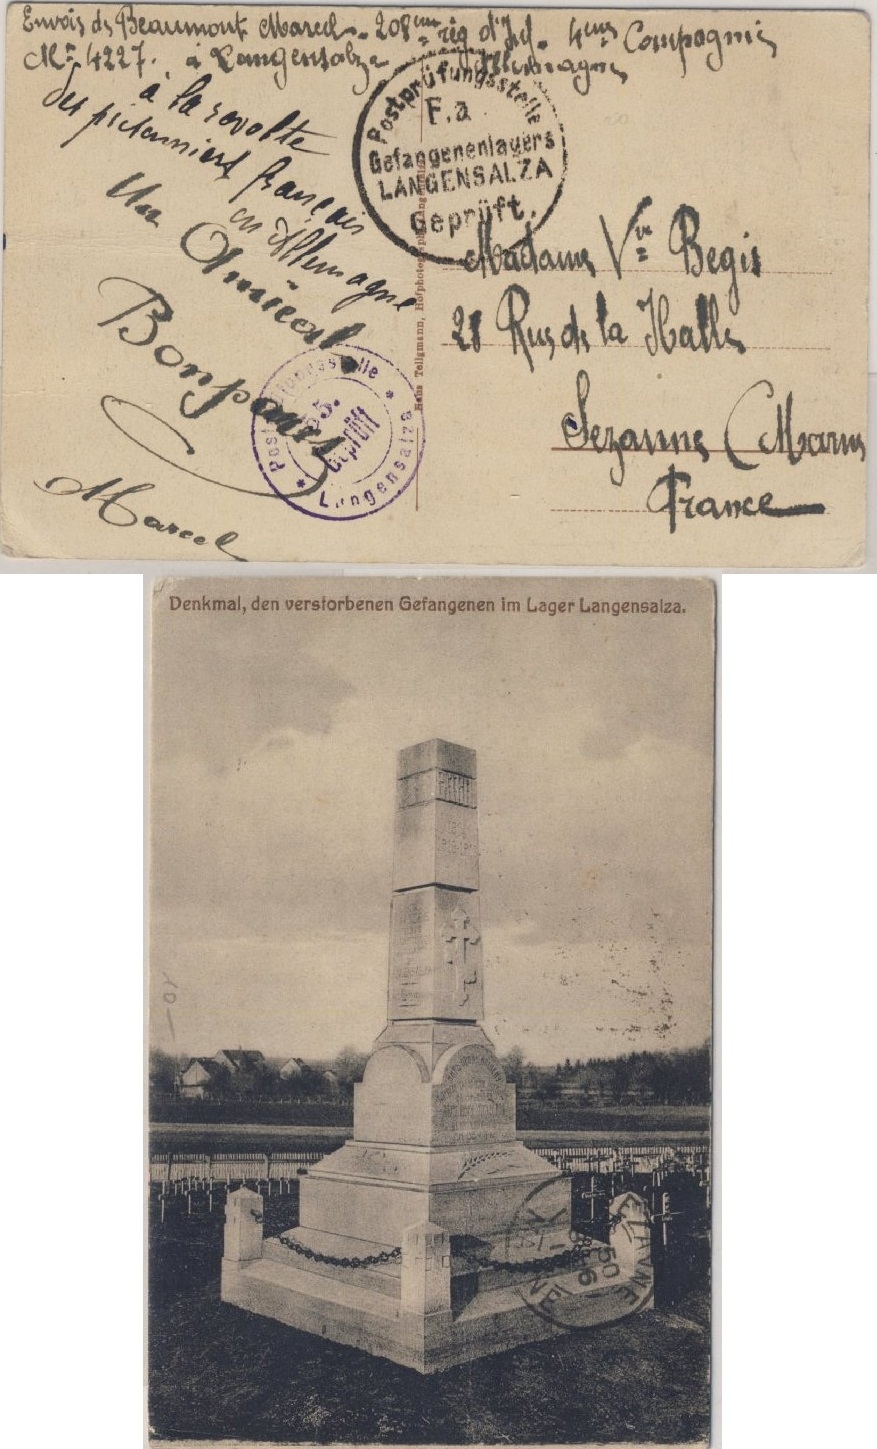 Envois de Beaumont Marcel. 208eme rég d'Inf. 4eme Compagnie
Mle 4227. à Langensalza Allemagne
à la révolte
des prisonniers français
en Allemagne
Un Amical
Bonjour
Marcel
Postprüfungsstelle
F.a
Gefangenenlagers
LANGENSALZA
Geprüft.
Madame Vve Begis
28 Rue de la Halle
Sezanne (Marne
France
Postprüfungsstelle
55.
Geprüft
* Langensalza *
Hans Tellgmann, Hofphotograph, Langensalza
Denkmal, den verstorbenen Gefangenen im Lager Langensalza.
10 –